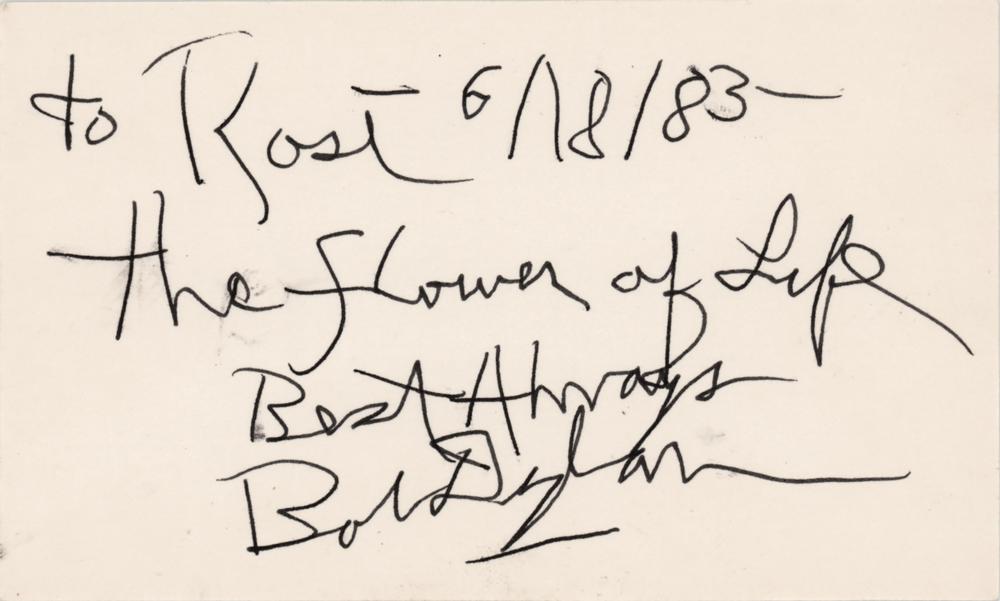 to Rose 6/18/83-
the flower of Life
Best Always
Bob Dylan